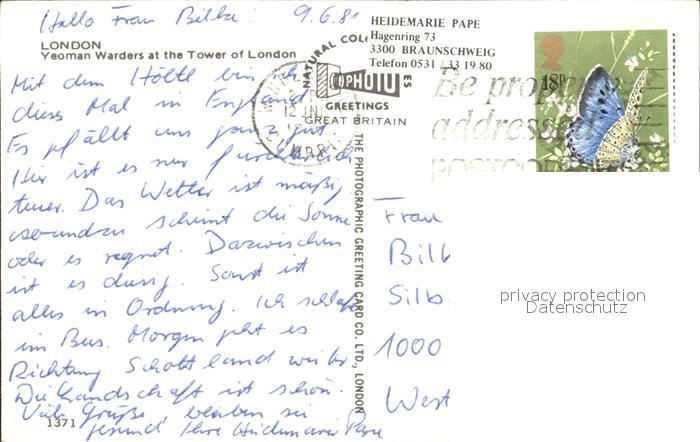 Hallo Frau Bilke! 9.6.81
HEIDEMARIE PAPE
Hagenring 73
3300 BRAUNSCHWEIG
Telefon 0531 / 33 19 80
LONDON
Yeoman Warders at the Tower of London
NATURAL COLO
PHOTO
GREETINGS
GREAT BRITAIN
18P
Be properly
addressed
POSTCO
Mit dem Höltl bin ich
dieses Mal in England.
Es gefällt uns ganz gut.
Hier ist es nur furchtbar
teuer. Das Wetter ist mäßig
ab und zu scheint die Sonne
oder es regnet. Dazwischen
ist es dunstig. Sonst ist
alles in Ordnung. Ich schlafe
im Bus. Morgen geht es
Richtung Schottland weiter.
Die Landschaft ist schön.
Viele Grüße bleiben sie
gesund Ihre Heidemarie Pape
1371
THE PHOTOGRAPHIC GREETING CARD CO. LTD., LONDON
Frau
Bilk
Silb
1000
West
privacy protection
Datenschutz